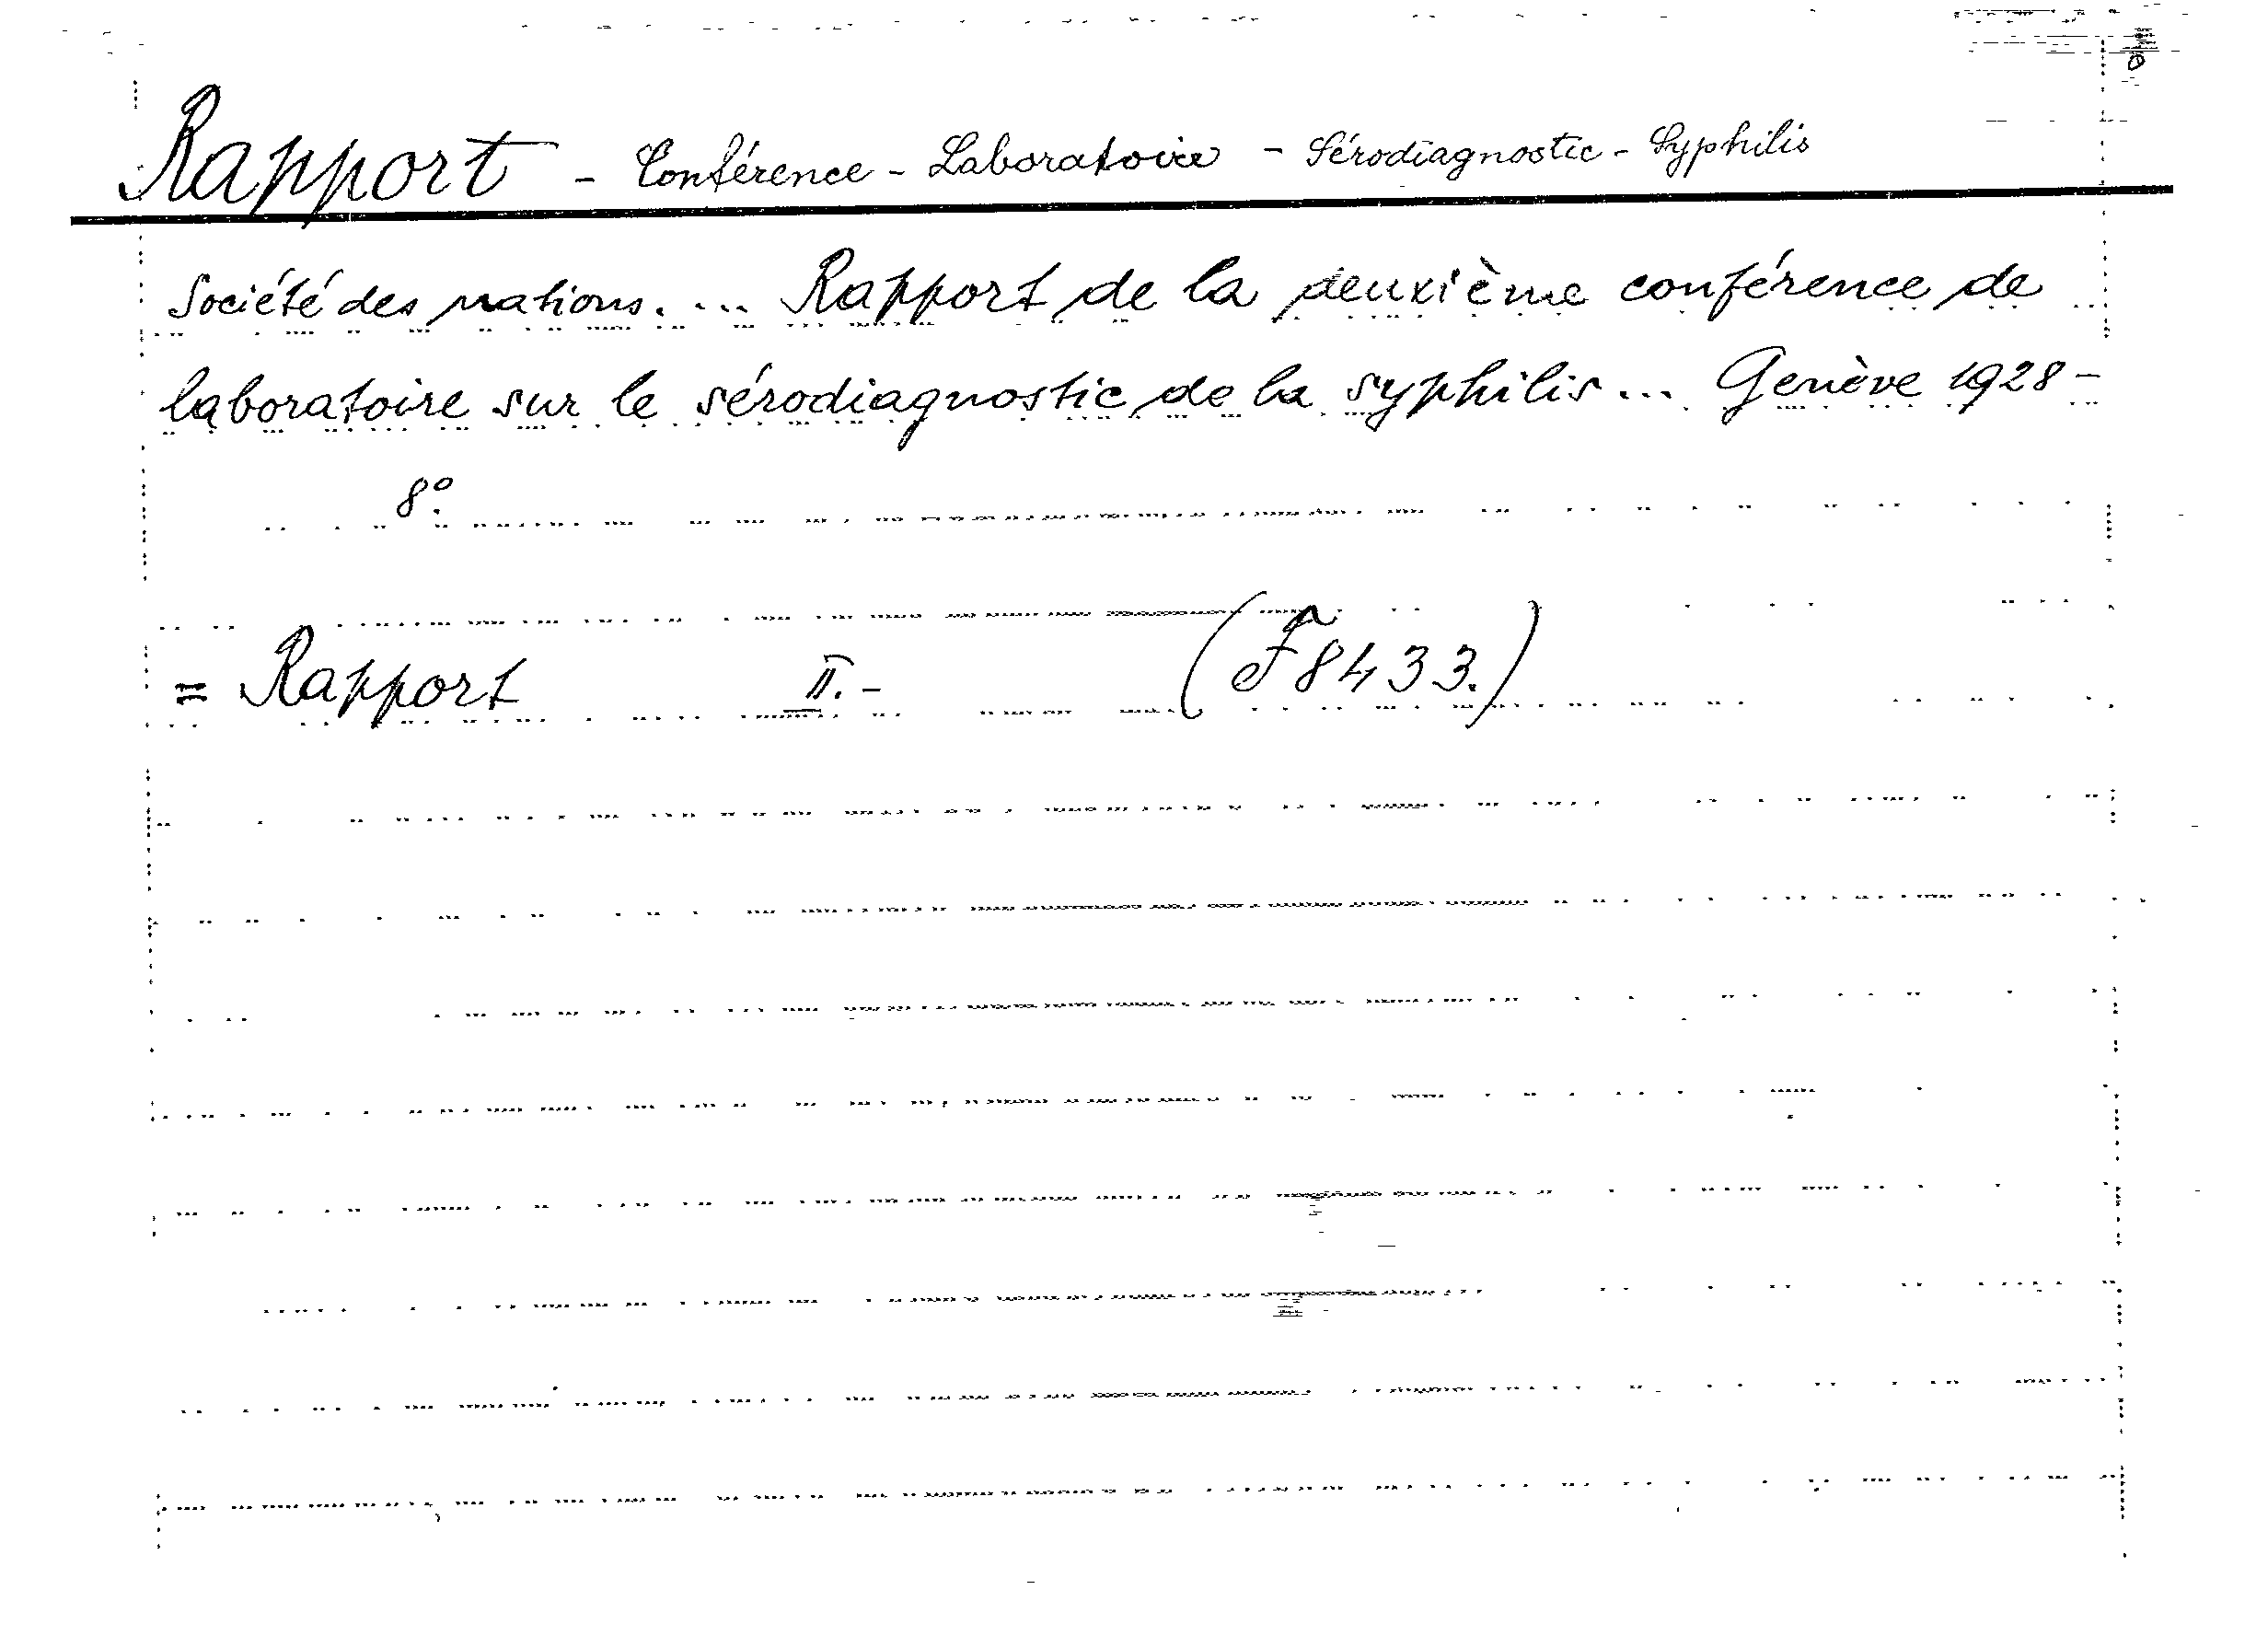 Rapport - Conférence - Laboratoire - Sérodiagnostic - Syphilis
Société des nations. ... Rapport de la deuxième conférence de
laboratoire sur le sérodiagnostic de la syphilis ... Genève 1928 -
8º.
= Rapport II. - (F 8433.)